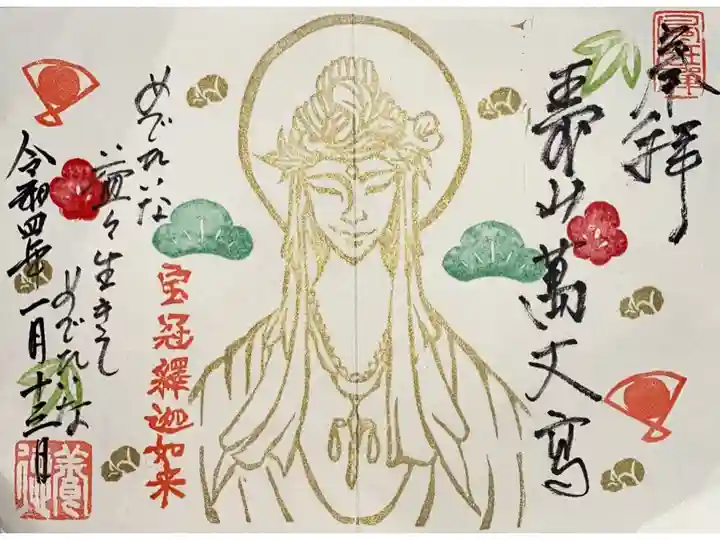 奉拝
壽山萬丈高
めでたいな
益々生きて
めでたいな
令和四年一月十三日
宝冠釋迦如来